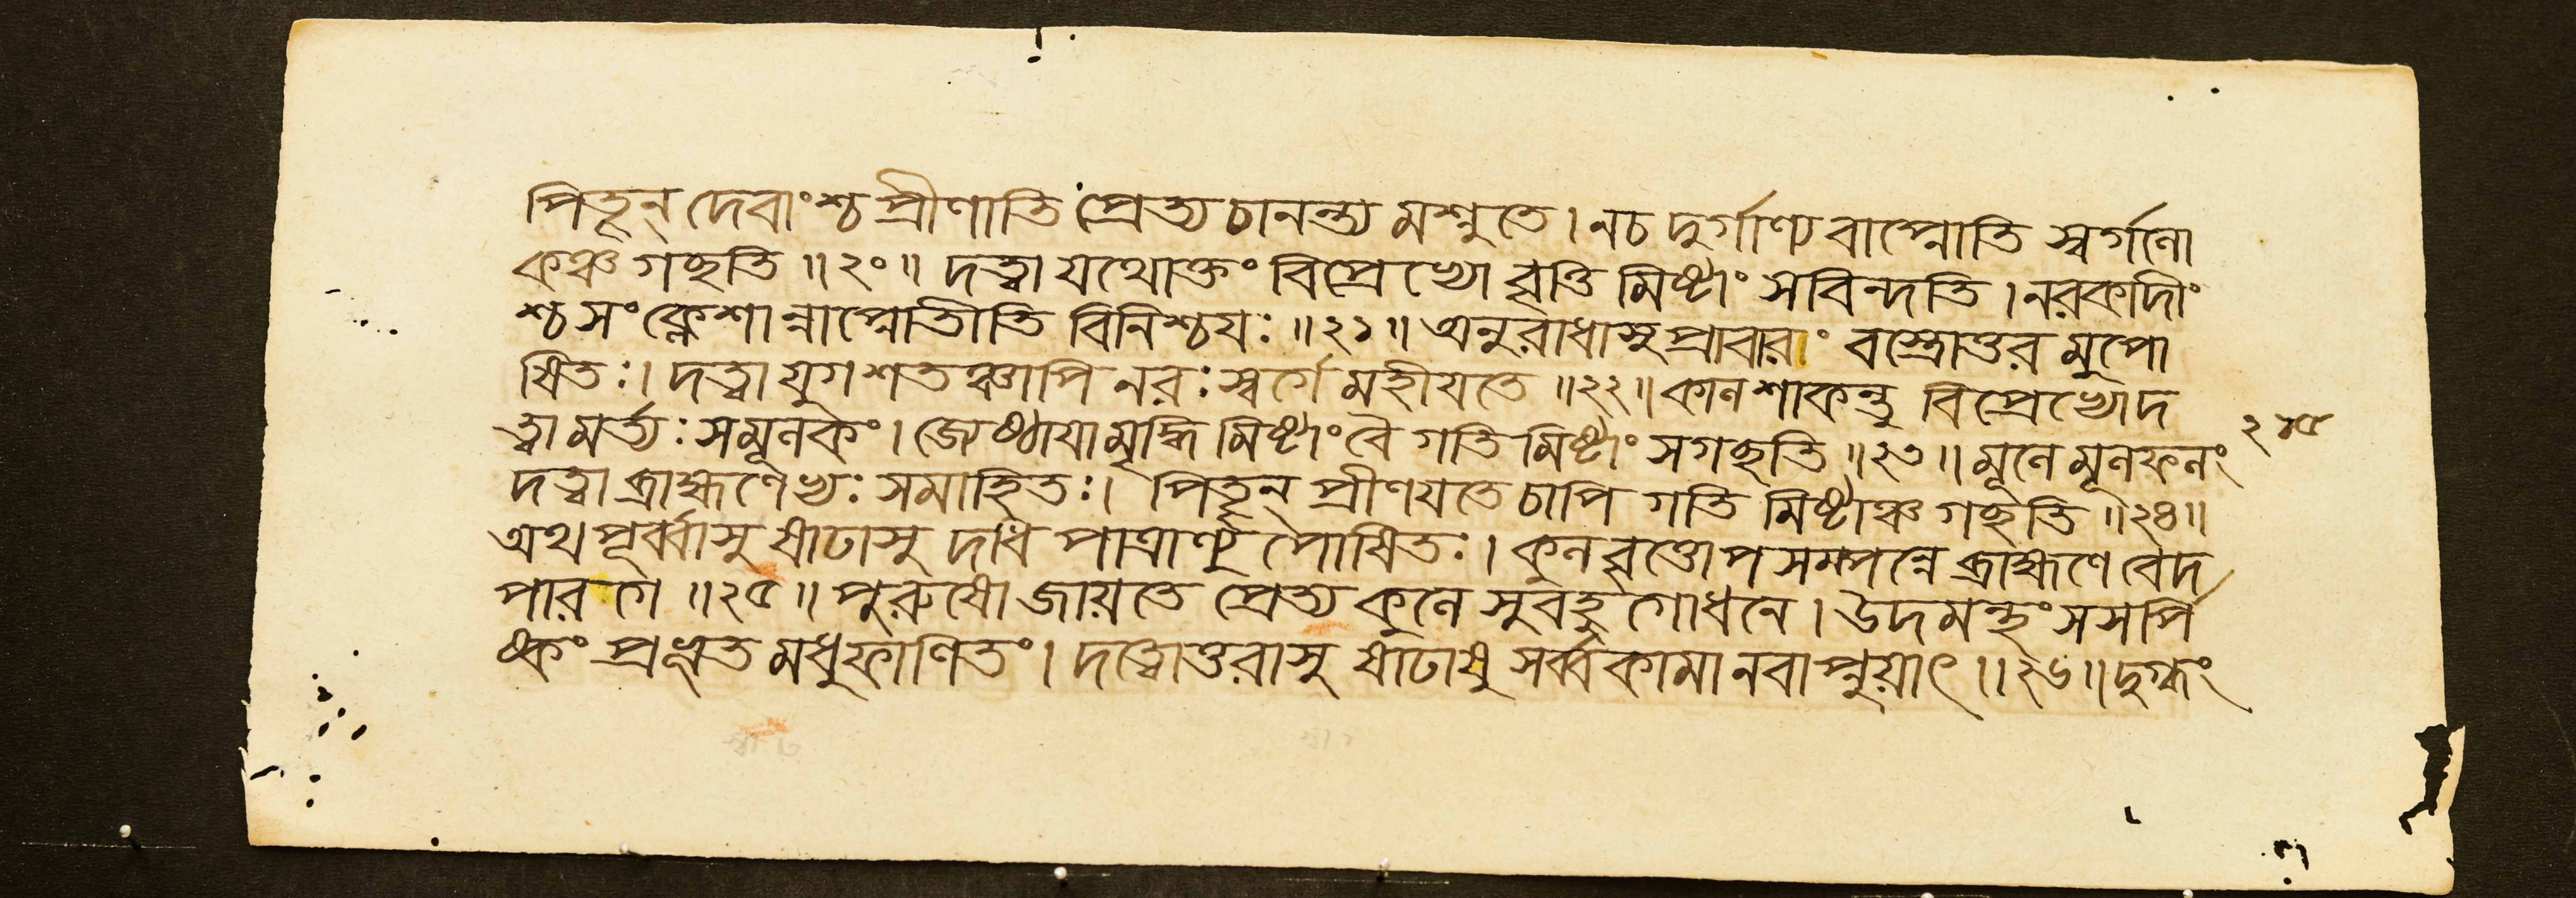 পিতৄন্ দেবাংশ্চ প্রীণাতি প্রেত্য চানন্ত্য মশ্নুতে। নচ দুর্গাণ্যবাপ্নোতি স্বর্গলো
কঞ্চ গচ্ছতি ॥২০॥ দত্ত্বা যথোক্তং বিপ্রেভ্যো বৃত্তি মিষ্টাং স বিন্দতি । নরকাদীং
শ্চ সংক্লেশান্নাপ্নোতীতি বিনিশ্চযঃ ॥২১॥ অনুরাধাসু প্রাবারং বস্ত্রোত্তর মুপো
ষিতঃ। দত্ত্বা যুগ শতঞ্চাপি নরঃ স্বর্গে মহীযতে ॥২২॥ কালশাকন্তু বিপ্রেভ্যো দ
ত্ত্বা মর্ত্যঃ সমূলকং। জ্যেষ্ঠাযামৃদ্ধি মিষ্টাং বৈ গতি মিষ্টাং স গচ্ছতি ॥২৩॥ মূলে মূলফলং
দত্ত্বা ব্রাহ্মণেভ্যঃ সমাহিতঃ। পিতৄন্ প্রীণযতে চাপি গতি মিষ্টাঞ্চ গচ্ছতি ॥২৪॥
অথ পূর্ব্বাসু ষাঢাসু দধি পাত্রাণ্যু পোষিতঃ। কুল বৃত্তোপ সম্পন্নে ব্রাহ্মণে বেদ
পারগে ॥২৫॥ পুরুষো জায়তে প্রেত্য কুলে সুবহু গোধনে। উদমন্থং সসর্পি
ষ্কং প্রভূত মধু ফাণিতং। দত্ত্বোত্তরাসু ষাঢাষু সর্ব্বকামানবাপ্নুয়াৎ ॥২৬॥ দুগ্ধং